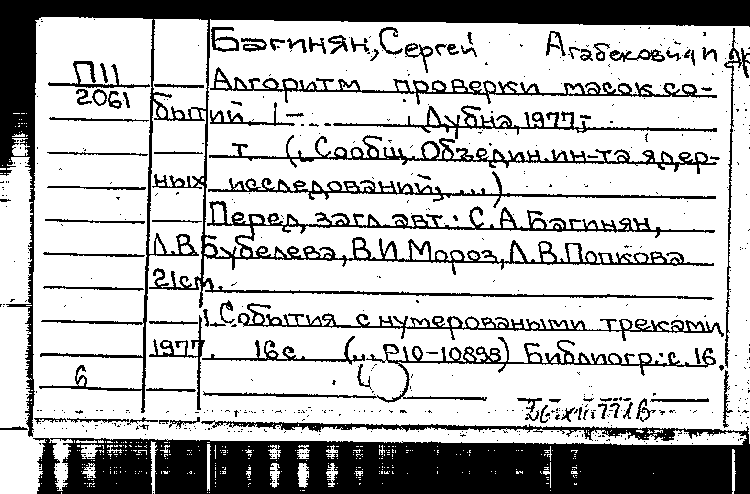 Багинян, Сергей Агабекович и др
П11
2061
Алгоритм проверки масок со-
бытий. 1 – Дубна, 1977г
т. (, Сообщ. Объедин. ин-та ядер-
ных исследований, ...).
Перед загл. авт.: С.А.Багинян,
Л.В.Бубелева, В.И.Мороз, Л.В.Попкова
21см.
1. События с нумероваными треками
1977. 16с. (... Р10-10898) Библиогр.: с. 16.
6